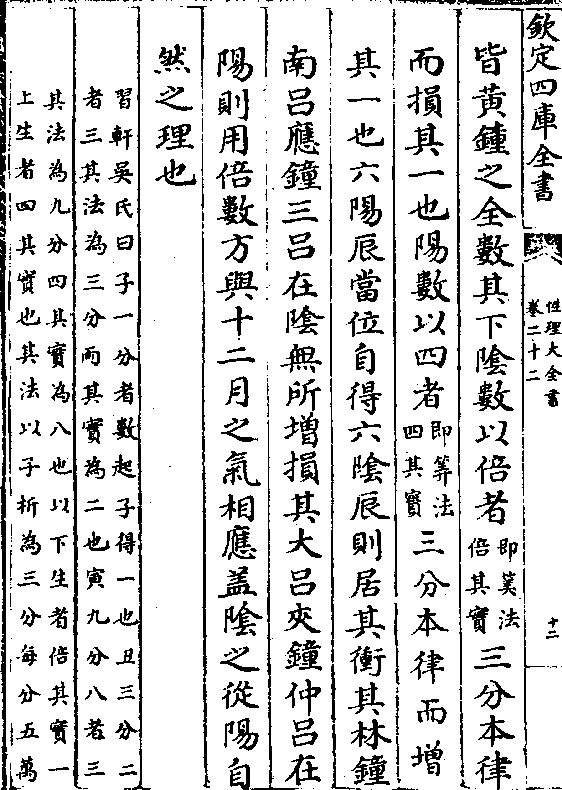 欽定四庫全書
性理大全書
卷二十二
十二
皆黃鍾之全數其下陰數以倍者
即筭法
倍其實
三分本律
而損其一也陽數以四者
即筭法
四其實
三分本律而增
其一也六陽辰當位自得六陰辰則居其衝其林鐘
南呂應鐘三呂在陰無所增損其大呂夾鐘仲呂在
陽則用倍數方與十二月之氣相應蓋陰之從陽自
然之理也
習軒吳氏曰子一分者數起子得一也丑三分二
者三其法為三分而其實為二也寅九分八者三
其法為九分四其實為八也以下生者倍其實一
上生者四其實也其法以子析為三分每分五萬